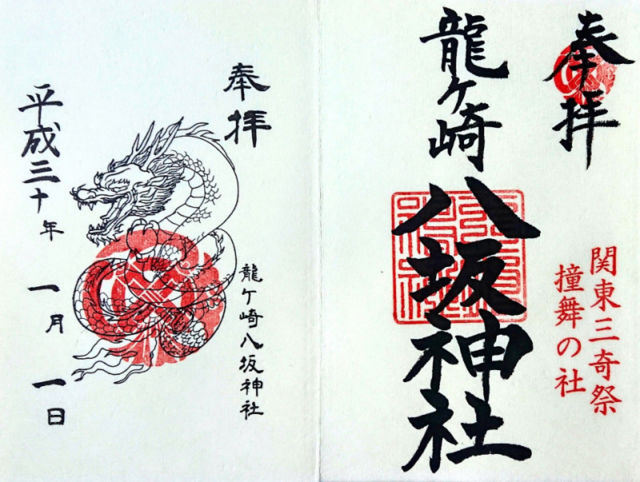 奉拝
龍ヶ崎
八坂神社
関東三奇祭
撞舞の社
奉拝
龍ケ崎八坂神社
平成三十年
一月一日